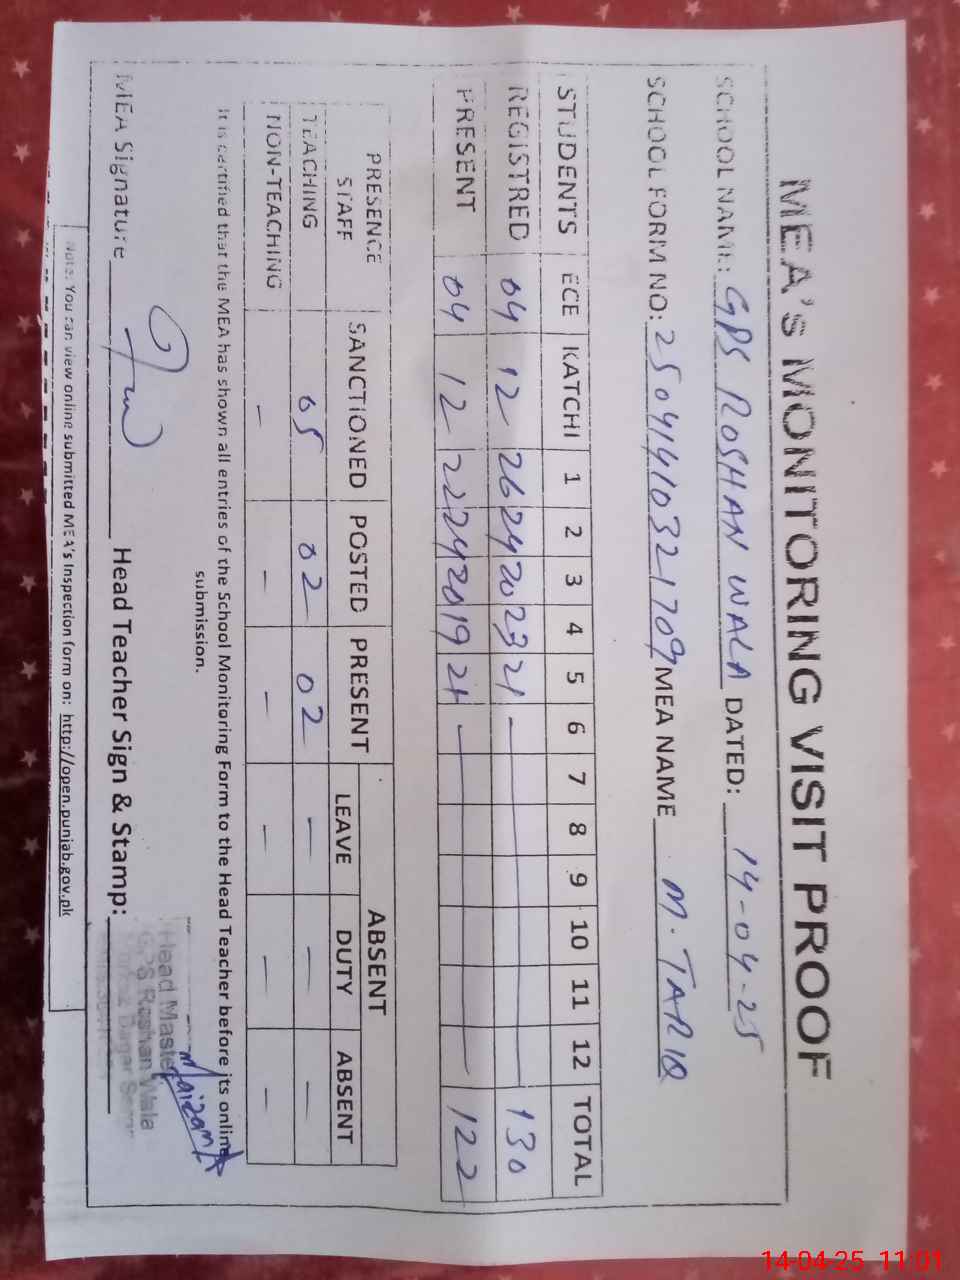 MEA'S MONITORING VISIT PROOF
SCHOOL NAME: GPS ROSHAN WALA DATED: 14-04-25
SCHOOL FORM NO: 25041410321709 MEA NAME M. TARIQ
STUDENTS ECE KATCHI 1 2 3 4 5 6 7 8 9 10 11 12 TOTAL
REGISTRED 04 12 26 24 20 23 21 — 130
PRESENT 04 12 22 24 20 19 21 — 122
PRESENCE STAFF SANCTIONED POSTED PRESENT ABSENT
LEAVE DUTY ABSENT
TEACHING 05 02 02 — — —
NON-TEACHING — — — — — —
It is certified that the MEA has shown all entries of the School Monitoring Form to the Head Teacher before its online
submission.
MEA Signature Head Teacher Sign & Stamp:
Head Master
GPS Roshan Wala
Note: You can view online submitted MEA's Inspection form on: http://open.punjab.gov.pk
14-04-25 11:01